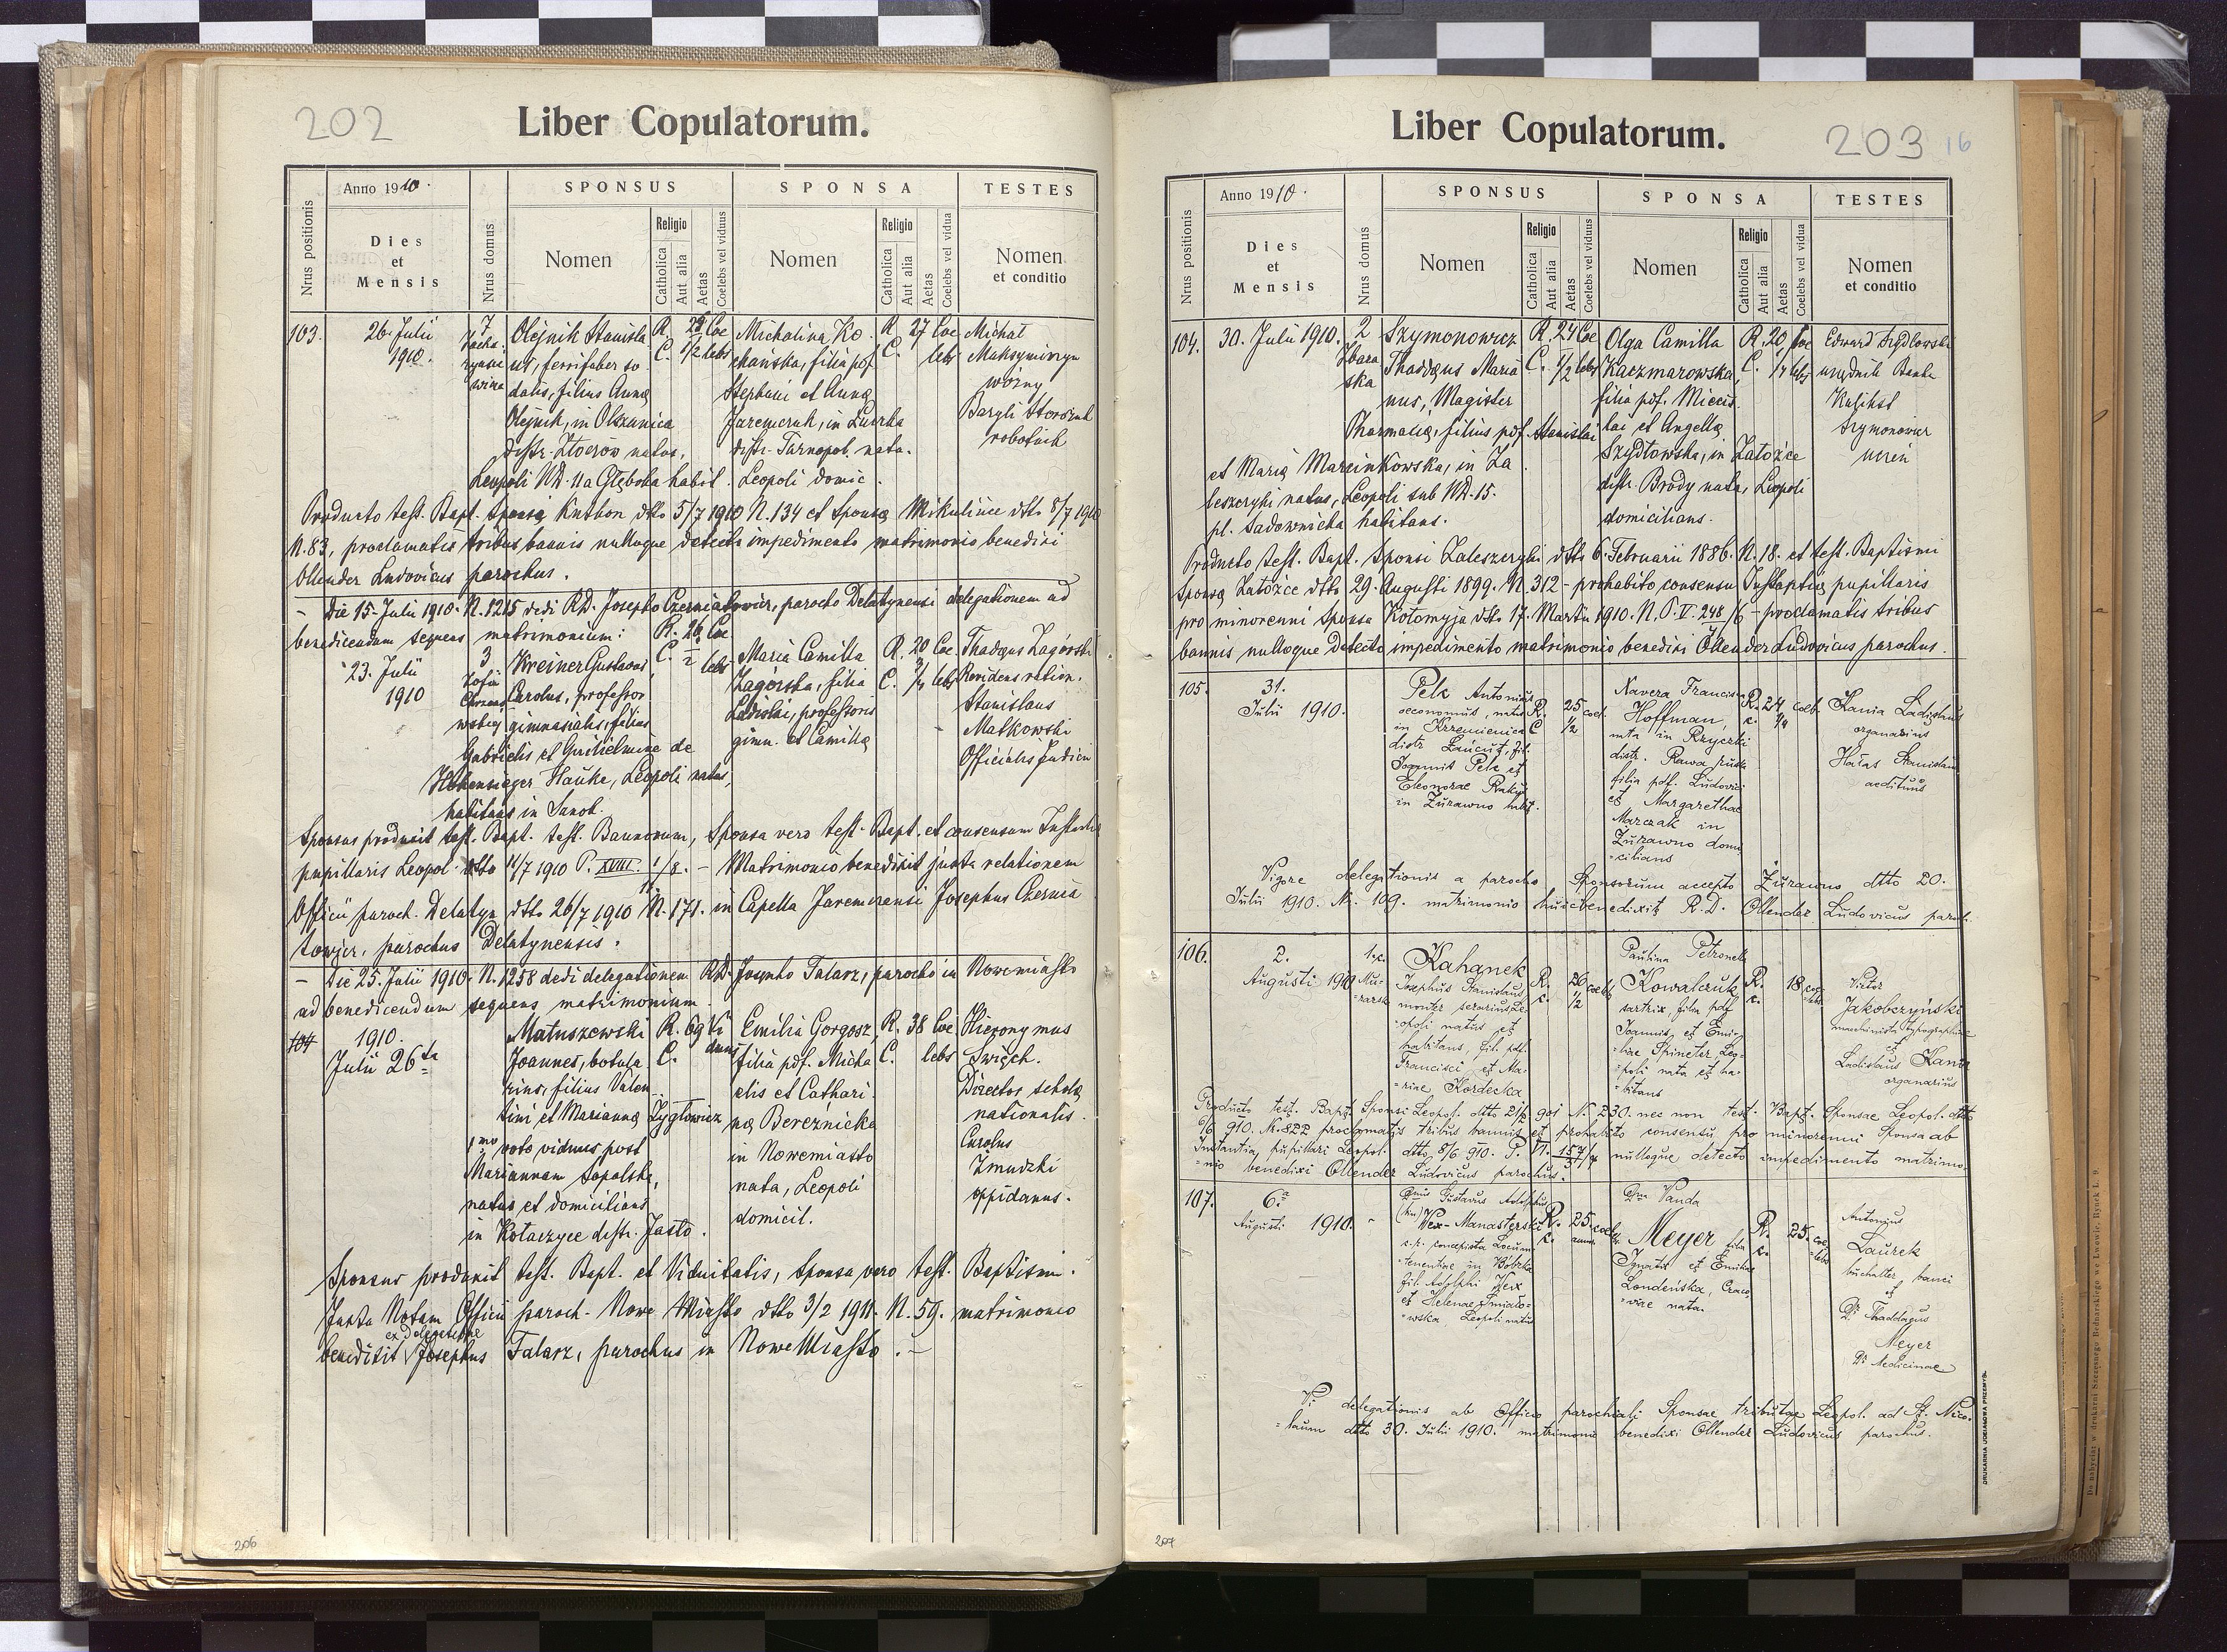 202
Liber Copulatorum.
Nrus positionis
Anno 1910.
Dies
et
Mensis
Nrus domus
SPONSUS
Nomen
Religio
Catholica
Aut alia
Aetas
Coelebs vel viduus
SPONSA
Nomen
Religio
Catholica
Aut alia
Aetas
Coelebs vel vidua
TESTES
Nomen
et conditio
103.
26. Julii
1910.
7
Olejnik Stanisla
us, ferrifaber so
dalis, filius Annę
Olejnik, in Olszanica
distr. Złoczów natus,
Leopoli ND. 11a Głęboka habit.
R. 28 Coe
C. 1/2 lebs
Michalina Ko
chańska, filia pdf.
Stephani et Annę
Jaremczuk, in Łuczka
distr. Tarnopol. nata.
Leopoli domic.
R. 27 Coe
C. lebs
Michał
Maksyminyn
woźny
Bazyli Storszuk
robotnik
Producto test. Bapt. Sponsi dtto 5/7 1910 N. 134 et Sponsę Mikulińce dtto 8/7 1910
N. 83, proclamatis tribus bannis nulloque detecto impedimento matrimonio benedixi
Ollender Ludovicus parochus.
– Die 15. Julii 1910. N. 1215 dedi RD. Josepho Czerniatowicz, parocho Delatynensi delegationem ad
benedicendum sequens matrimonium:
23. Julii
1910
3
Zofii
Chrzanow
wskiej
Kreiner Gustavus
Carolus, professor
gimnasialis, filius
Gabrielis et Guilielminę de
Hohensieger Hauke, Leopoli natus,
habitans in Sanok.
R. 26 Coe
C. 1/2 lebs
Maria Camilla
Zagórska, filia
Ladislai, professoris
gimn. et Camillę
R. 20 Coe
C. 3/4 lebs
Thadęus Zagórski
Revidens ration.
Stanislaus
Małkowski
Officialis Judicii
Sponsus produxit test. Bapt. test. Bannorum, Sponsa vero test. Bapt. et consensum Instantię
pupillaris Leopol. dtto 11/7 1910 P. XVIII. 1/8. – Matrimonio benedixit juxta relationem
Officii paroch. Delatyn dtto 26/7 1910 N. 171. in Capella Jaremczensi Josephus Czernia
towicz, parochus Delatynensis.
– Die 25. Julii 1910. N. 1258 dedi delegationem RD. Josepho Talarz, parocho in Nowemiasto
ad benedicendum sequens matrimonium
104
1910.
Julii 26ta
Matuszewski
Joannes, botula
rius, filius Valen
tini et Mariannę Zygłowicz
1mo voto viduus post
Mariannam Sopalską,
natus et domicilians
in Kołaczyce distr. Jasło.
R. 69 Vi
C. duus
Emilia Gorgosz,
filia pdf. Micha
elis et Cathari
nę Bereźnicka
in Nowemiasto
nata, Leopoli
domicil.
R. 38 Coe
C. lebs
Hieronymus
Święch.
Director scholę
nationalis.
Carolus
Żmudzki
oppidanus.
Sponsus produxit test. Bapt. et Viduitatis, Sponsa vero test. Baptismi.
Juxta Notam Officii paroch. Nowe Miasto dtto 3/2 1911. N. 59. matrimonio
benedixit ex delegatione Josephus Talarz, parochus in Nowe Miasto. –
206
Liber Copulatorum.
203 16
Nrus positionis
Anno 1910.
Dies
et
Mensis
Nrus domus
SPONSUS
Nomen
Religio
Catholica
Aut alia
Aetas
Coelebs vel viduus
SPONSA
Nomen
Religio
Catholica
Aut alia
Aetas
Coelebs vel vidua
TESTES
Nomen
et conditio
104.
30. Julii 1910.
2
Zbara
ska
Szymonowicz
Thadęus Maria
nus, Magister
Pharmacię, filius pdf. Stanislai
et Marię Marcinkowska, in Za
leszczyki natus, Leopoli sub ND. 15.
pl. Sadownicka habitans.
R. 24 Coe
C. 1/2 lebs
Olga Camilla
Kaczmarowska,
filia pdf. Miecis
lai et Angelę
Szydłowska, in Załoźce
distr. Brody nata, Leopoli
domicilians.
R. 20 Coe
C. 1/4 lebs
Edward Szydłowski
urzędnik Banku
Kalikst
Szymonowicz
uczeń
Producto test. Bapt. Sponsi Zaleszczyki dtto 6. Februarii 1886. N. 18. et test. Baptismi
Sponsę Załoźce dtto 29. Augusti 1899. N. 312 – prohabito consensu Instantię pupillaris
pro minorenni Sponsa Kołomyja dtto 17. Martii 1910. N. P. II 248/6 – proclamatis tribus
bannis nulloque detecto impedimento matrimonio benedixi Ollender Ludovicus parochus.
105.
31.
Julii 1910.
Pelc Antonius
oeconomus, natus
in Krzemienica
distr. Łańcut, fil.
Joannis Pelc et
Eleonorae Rakuś
in Żurawno habit.
R. 25 coel.
C. 1/2
Xavera Francisca
Hoffman,
nata in Rzyczki
distr. Rawa ruska
filia pdf. Ludovici
et Margarethae
Marczak in
Żurawno domi
cilians
R. 24 coeb.
c. 1/4
Kania Ladislaus
organarius
Hałas Stanislaus
aedituus
Vigore delegationis a parocho Sponsorum accepto Żurawno dtto 20.
Julii 1910. N. 109. matrimonio huic benedixit R.D. Ollender Ludovicus paroch.
106.
2.
Augusti 1910
Mu-
rarska
Kahanek
Josephus Stanislaus
monter serarius Le-
opoli natus et
habitans, fil. pdf.
Francisci et Ma-
riae Kordecka
R. 26 coelb
c. 1/2
Paulina Petronela
Kowalczuk
sartrix, filia pdf.
Joannis, et Emi-
liae Spineter, Leo-
poli nata et ha-
bitans
R. 18 coe
c. lebs
Victor
Jakobczyński
machinista typographiae
et
Ladislaus Kania
organarius
Producto test. Bapt. Sponsi Leopol. dtto 901 N. 230. nec non test. Bapt. Sponsae Leopol. dtto
9/6 910. N. 822 proclamatis tribus bannis et prohabito consensu pro minorenni Sponsa ab
Instantia pupillari Leopol. dtto 8/6. 910. P. VI. 157/4 nulloque detecto impedimento matrimo-
nio benedixi Ollender Ludovicus parochus.
107.
6.a
Augusti 1910.
Dnus Gustavus Adolphus
Weix-Manasterski
c.r. concepista Locum
tenentiae in Bóbrka
fil. Adolphi Weix
et Helenae Śmiało-
wska, Leopoli natus
R. 25. coelb.
c. annor.
Dna Vanda
Meyer filia
Ignatii et Emiliae
Londeńska, Craco-
viae nata.
R. 25. coe
c. lebs
Antonius
Laurek
buchalter banci
et
Dr Thaddaeus
Meyer
Dr Medicinae
Vi delegationis ab Officio parochiali Sponsae tributae Leopol. ad St. Nico-
laum dtto 30. Julii 1910. matrimonio benedixi Ollender Ludovicus parochus.
207
DRUKARNIA UDZIAŁOWA PRZEMYŚL.
Do nabycia w drukarni Szczęsnego Bednarskiego we Lwowie, Rynek L. 9.